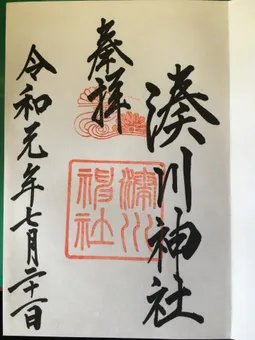 奉拝
湊川神社
湊川
神社
令和元年七月二十一日